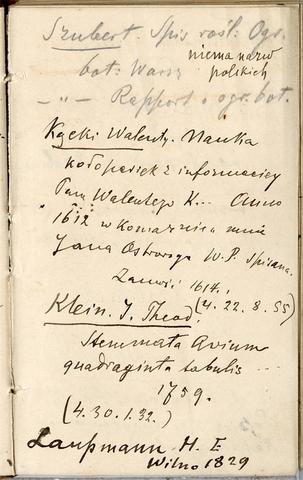 Szubert. Spis rośl: Ogr.
bot: Warsz
niema nazw
polskich
— „ — Rapport o ogr. bot.
Kącki Walenty. Nauka
koło pasiek z informacyey
Pana Walentego K... Anno
1612 w Komarnie u mnie
Jana Ostroroga W. P. spisana.
Zamość 1614.
(4. 22. 8. 55)
Klein. J. Theod.
Stemmata Avium
quadraginta tabulis ...
1759.
(4. 30. 1. 32.)
Laupmann H. E
Wilno 1829